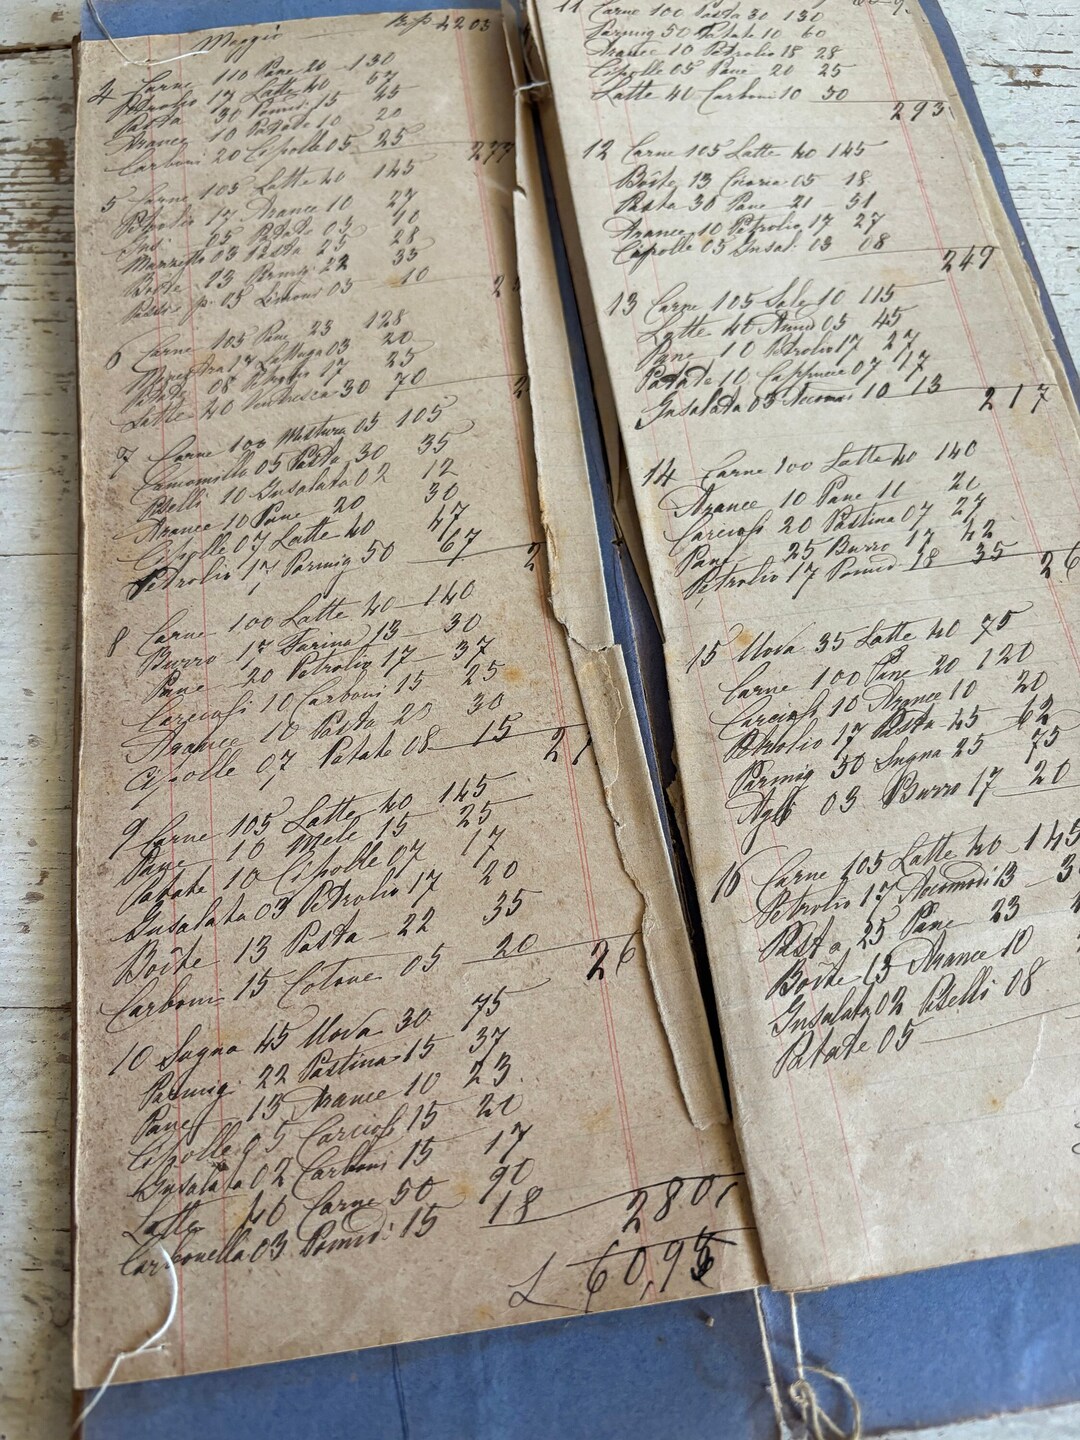 Maggio 4203
4 Carne 110 Pane 20 130
Petrolio 17 Latte 40 57
Pasta 30 Pomid: 15 45
Arance 10 Patate 10 20
Carboni 20 Cipolle 05 25
277
5 Carne 105 Latte 40 145
Petrolio 17 Arance 10 27
05 Patate 05 10
03 Pasta 25 28
Boîte 13 Parmig: 22 35
05 Limoni 03 10
2
6 Carne 105 Pane 23 128
17 Lattuga 03 20
Patate 08 Petrolio 17 25
Latte 40 Ventresca 30 70
2
7 Carne 100 Mistura 05 105
Camomilla 05 Pasta 30 35
Piselli 10 Insalata 02 12
Arance 10 Pane 20 30
Cipolle 07 Latte 40 47
Petrolio 17 Parmig 50 67
2
8 Carne 100 Latte 40 140
Burro 17 Farina 13 30
Pane 20 Petrolio 17 37
Carciofi 10 Carboni 15 25
Arance 10 Pasta 20 30
Cipolle 07 Patate 08 15
27
9 Carne 105 Latte 40 145
Pane 10 Mele 15 25
Patate 10 Cipolle 07 17
Insalata 03 Petrolio 17 20
Boîte 13 Pasta 22 35
Carboni 15 Cotone 05 20
26
10 Sogna 45 Uova 30 75
Parmig: 22 Pastina 15 37
Pane 13 Arance 10 23
Cipolle 05 Carciofi 15 20
Insalata 02 Carboni 15 17
Latte 40 Carne 50 90
Carbonella 03 Pomid: 15 18
280
L 60,95
11 Carne 100 Pasta 30 130
Parmig 50 Patate 10 60
Arance 10 Petrolio 18 28
Cipolle 05 Pane 20 25
Latte 40 Carboni 10 50
293
12 Carne 105 Latte 40 145
Boîte 13 Cicoria 05 18
Pasta 30 Pane 21 51
Arance 10 Petrolio 17 27
Cipolle 05 Insal: 03 08
249
13 Carne 105 Sale 10 115
Latte 40 Amid 05 45
Pane 10 Petrolio 17 27
Patate 10 Cappuccia 07 17
Insalata 03 10 13
217
14 Carne 100 Latte 40 140
Arance 10 Pane 10 20
Carciofi 20 Pastina 07 27
Pane 25 Burro 17 42
Petrolio 17 Pomid 18 35
26
15 Uova 35 Latte 40 75
Carne 100 Pane 20 120
Carciofi 10 Arance 10 20
Petrolio 17 Pasta 45 62
Parmig 50 Sugna 25 75
Agli 03 Burro 17 20
16 Carne 105 Latte 40 145
Petrolio 17 13 3
Pasta 25 Pane 23
Boîte 13 Arance 10
Insalata 02 Piselli 08
Patate 05